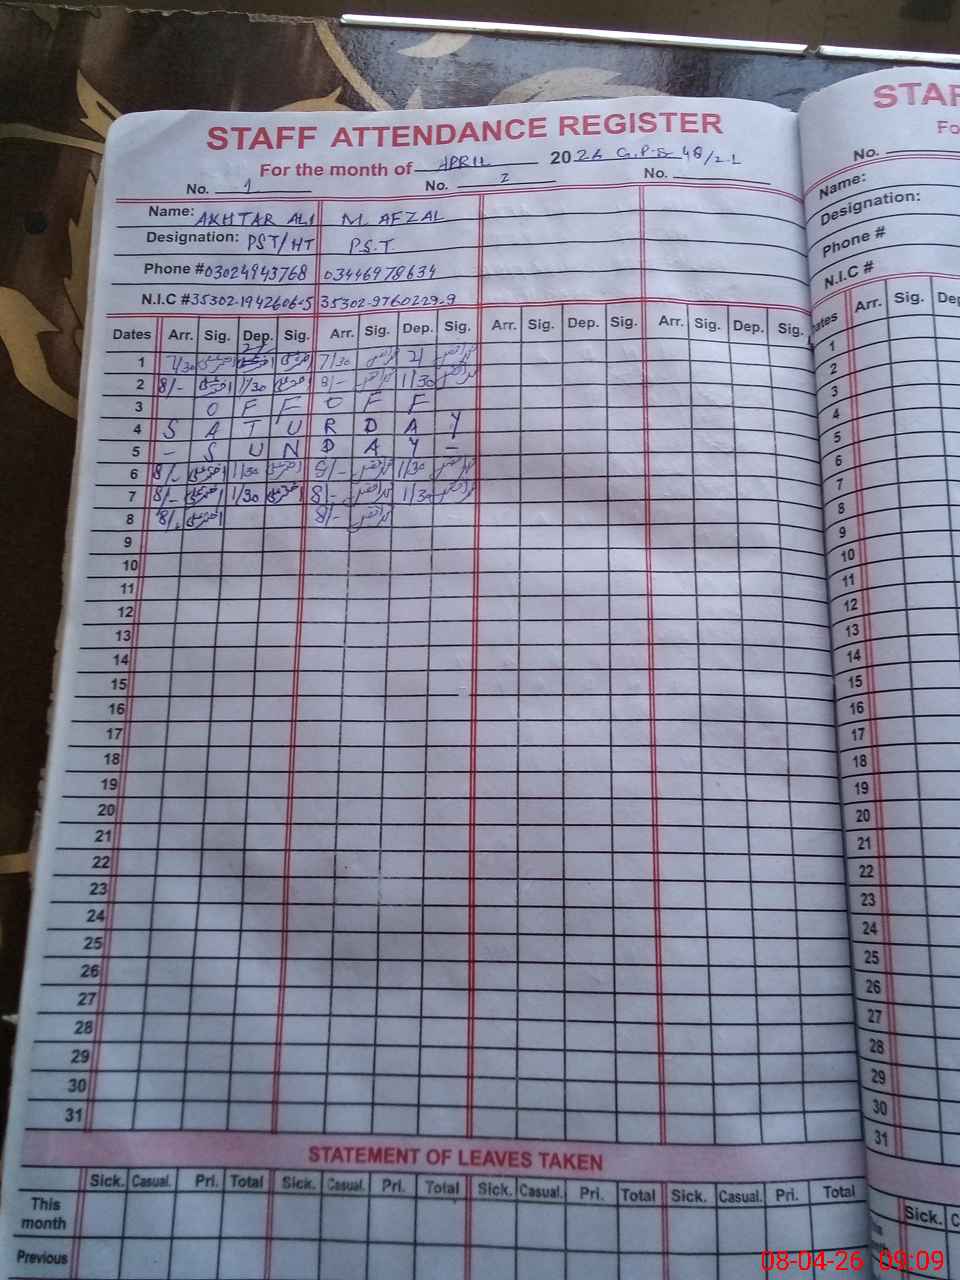 STAFF ATTENDANCE REGISTER
For the month of APRIL 2026 G.P.S 48/2.L
No. 1 No. 2 No.
Name: AKHTAR ALI M. AFZAL
Designation: PST/HT P.S.T
Phone # 03024943768 03446978634
N.I.C # 35302-1942606-5 35302-9760229-9
Dates Arr. Sig. Dep. Sig. Arr. Sig. Dep. Sig. Arr. Sig. Dep. Sig. Arr. Sig. Dep. Sig.
1 7/30 7/30
2 8/- 1/30 8/- 1/30
3 O F F O F F
4 S A T U R D A Y
5 - S U N D A Y -
6 8/- 1/30 8/- 1/30
7 8/- 1/30 8/- 1/30
8 8/- 8/-
9
10
11
12
13
14
15
16
17
18
19
20
21
22
23
24
25
26
27
28
29
30
31
STATEMENT OF LEAVES TAKEN
Sick. Casual. Pri. Total Sick. Casual. Pri. Total Sick. Casual. Pri. Total Sick. Casual. Pri. Total
This month
Previous
STAF
Fo
No.
Name:
Designation:
Phone #
N.I.C #
Arr. Sig.
1
2
3
4
5
6
7
8
9
10
11
12
13
14
15
16
17
18
19
20
21
22
23
24
25
26
27
28
29
30
31
Sick.
08-04-26 09:09